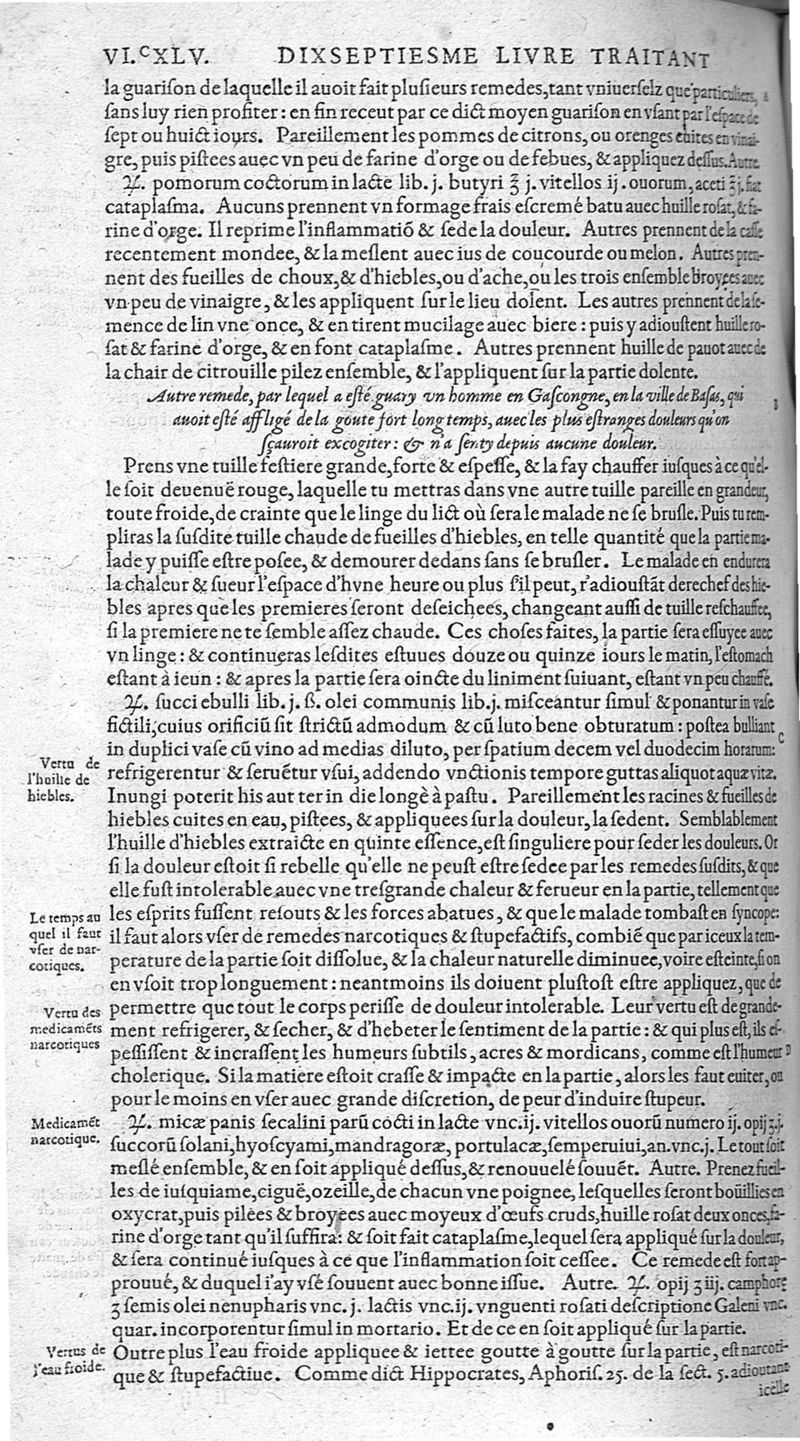 VI.ᶜXLV. DIXSEPTIESME LIVRE TRAITANT
la guariſon de laquelle il auoit fait pluſieurs remedes,tant vniuerſelz que particuliers,
ſans luy rien profiter: en fin receut par ce dict moyen guariſon en vſant par l'eſpace de
ſept ou huict iours. Pareillement les pommes de citrons, ou orenges cuites en vinai-
gre, puis piſtees auec vn peu de farine d'orge ou de febues, & appliquez deſſus. Autre
℞. pomorum coctorum in lacte lib. j. butyri ℥ j. vitellos ij. ouorum, aceti ℥j. fiat
cataplaſma. Aucuns prennent vn formage frais eſcremé batu auec huille roſat, & fa-
rine d'orge. Il reprime l'inflammatiõ & ſede la douleur. Autres prennent de la caſſe
recentement mondee, & la meſlent auec ius de coucourde ou melon. Autres pren-
nent des fueilles de choux,& d'hiebles,ou d'ache,ou les trois enſemble broyees auec
vn peu de vinaigre, & les appliquent ſur le lieu dolent. Les autres prennent de la ſe-
mence de lin vne once, & en tirent mucilage auec biere : puis y adiouſtent huille ro-
ſat & farine d'orge, & en font cataplaſme. Autres prennent huille de pauot auec de
la chair de citrouille pilez enſemble, & l'appliquent ſur la partie dolente.
Autre remede, par lequel a eſté guary vn homme en Gaſcongne, en la ville de Baſas, qui
auoit eſté affligé de la goute fort long temps, auec les plus eſtranges douleurs qu'on
ſçauroit excogiter: & n'a ſenty depuis aucune douleur.
Prens vne tuille feſtiere grande,forte & eſpeſſe, & la fay chauffer iuſques à ce qu'el-
le ſoit deuenuë rouge, laquelle tu mettras dans vne autre tuille pareille en grandeur,
toute froide, de crainte que le linge du lict où ſera le malade ne ſe bruſle. Puis tu rem-
pliras la ſuſdite tuille chaude de fueilles d'hiebles, en telle quantité que la partie ma-
lade y puiſſe eſtre poſee, & demourer dedans ſans ſe bruſler. Le malade en endurera
la chaleur & ſueur l'eſpace d'hvne heure ou plus ſ'il peut, r'adiouſtãt derechef des hie-
bles apres que les premieres ſeront deſeichees, changeant auſſi de tuille reſchauffee,
ſi la premiere ne te ſemble aſſez chaude. Ces choſes faites, la partie ſera eſſuyee auec
vn linge : & continueras leſdites eſtuues douze ou quinze iours le matin, l'eſtomach
eſtant à ieun : & apres la partie ſera oincte du liniment ſuiuant, eſtant vn peu chauffé.
℞. ſucci ebulli lib. j. ß. olei communis lib. j. miſceantur ſimul & ponantur in vaſe
fictili, cuius orificiũ ſit ſtrictũ admodum & cũ luto bene obturatum : poſtea bulliant
C
in duplici vaſe cũ vino ad medias diluto, per ſpatium decem vel duodecim horarum:
Vertu de
l'huille de
hiebles.
refrigerentur & ſeruẽtur vſui, addendo vnctionis tempore guttas aliquot aquæ vitæ.
Inungi poterit his aut ter in die longè à paſtu. Pareillement les racines & fueilles de
hiebles cuites en eau, piſtees, & appliquees ſur la douleur, la ſedent. Semblablement
l'huille d'hiebles extraicte en quinte eſſence, eſt ſinguliere pour ſeder les douleurs. Or
ſi la douleur eſtoit ſi rebelle qu'elle ne peuſt eſtre ſedee par les remedes ſuſdits, & que
elle fuſt intolerable auec vne treſgrande chaleur & ferueur en la partie, tellement que
Le temps au
quel il faut
vſer de nar-
cotiques.
les eſprits fuſſent reſouts & les forces abatues, & que le malade tombaſt en ſyncope:
il faut alors vſer de remedes narcotiques & ſtupefactifs, combiẽ que par iceux la tem-
perature de la partie ſoit diſſolue, & la chaleur naturelle diminuee, voire eſteinte, ſi on
en vſoit trop longuement : neantmoins ils doiuent pluſtoſt eſtre appliquez, que de
Vertu des
medicamẽts
narcotiques
permettre que tout le corps periſſe de douleur intolerable. Leur vertu eſt de grande-
ment refrigerer, & ſecher, & d'hebeter le ſentiment de la partie : & qui plus eſt, ils eſ-
peſſiſſent & incraſſent les humeurs ſubtils, acres & mordicans, comme eſt l'humeur
D
cholerique. Si la matiere eſtoit craſſe & impacte en la partie, alors les faut euiter, ou
pour le moins en vſer auec grande diſcretion, de peur d'induire ſtupeur.
Medicamẽt
narcotique.
℞. micæ panis ſecalini parũ cocti in lacte vnc. ij. vitellos ouorũ numero ij. opij ʒ. j.
ſuccorũ ſolani, hyoſcyami, mandragoræ, portulacæ, ſemperuiui, an. vnc. j. Le tout ſoit
meſlé enſemble, & en ſoit appliqué deſſus, & renouuelé ſouuẽt. Autre. Prenez fueil-
les de iuſquiame, ciguë, ozeille, de chacun vne poignee, leſquelles ſeront boüillies en
oxycrat, puis pilees & broyees auec moyeux d'œufs cruds, huille roſat deux onces, fa-
rine d'orge tant qu'il ſuffira: & ſoit fait cataplaſme, lequel ſera appliqué ſur la douleur,
& ſera continué iuſques à ce que l'inflammation ſoit ceſſee. Ce remede eſt fort ap-
prouué, & duquel i'ay vſé ſouuent auec bonne iſſue. Autre. ℞. opij ʒ iij. camphore
ʒ ſemis olei nenupharis vnc. j. lactis vnc. ij. vnguenti roſati deſcriptione Galeni vnc.
quar. incorporentur ſimul in mortario. Et de ce en ſoit appliqué ſur la partie.
Vertus de
l'eau froide.
Outre plus l'eau froide appliquee & iettee goutte à goutte ſur la partie, eſt narcoti-
que & ſtupefactiue. Comme dict Hippocrates, Aphoriſ. 25. de la ſect. 5. adioutant
icelle